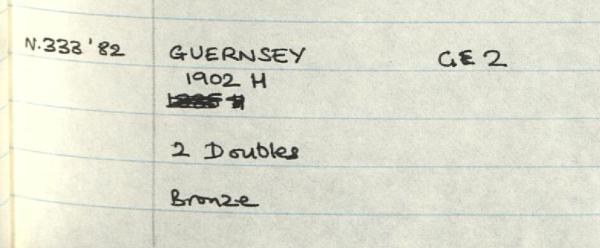 N.333 '82 GUERNSEY GE 2
1902 H
2 Doubles
Bronze